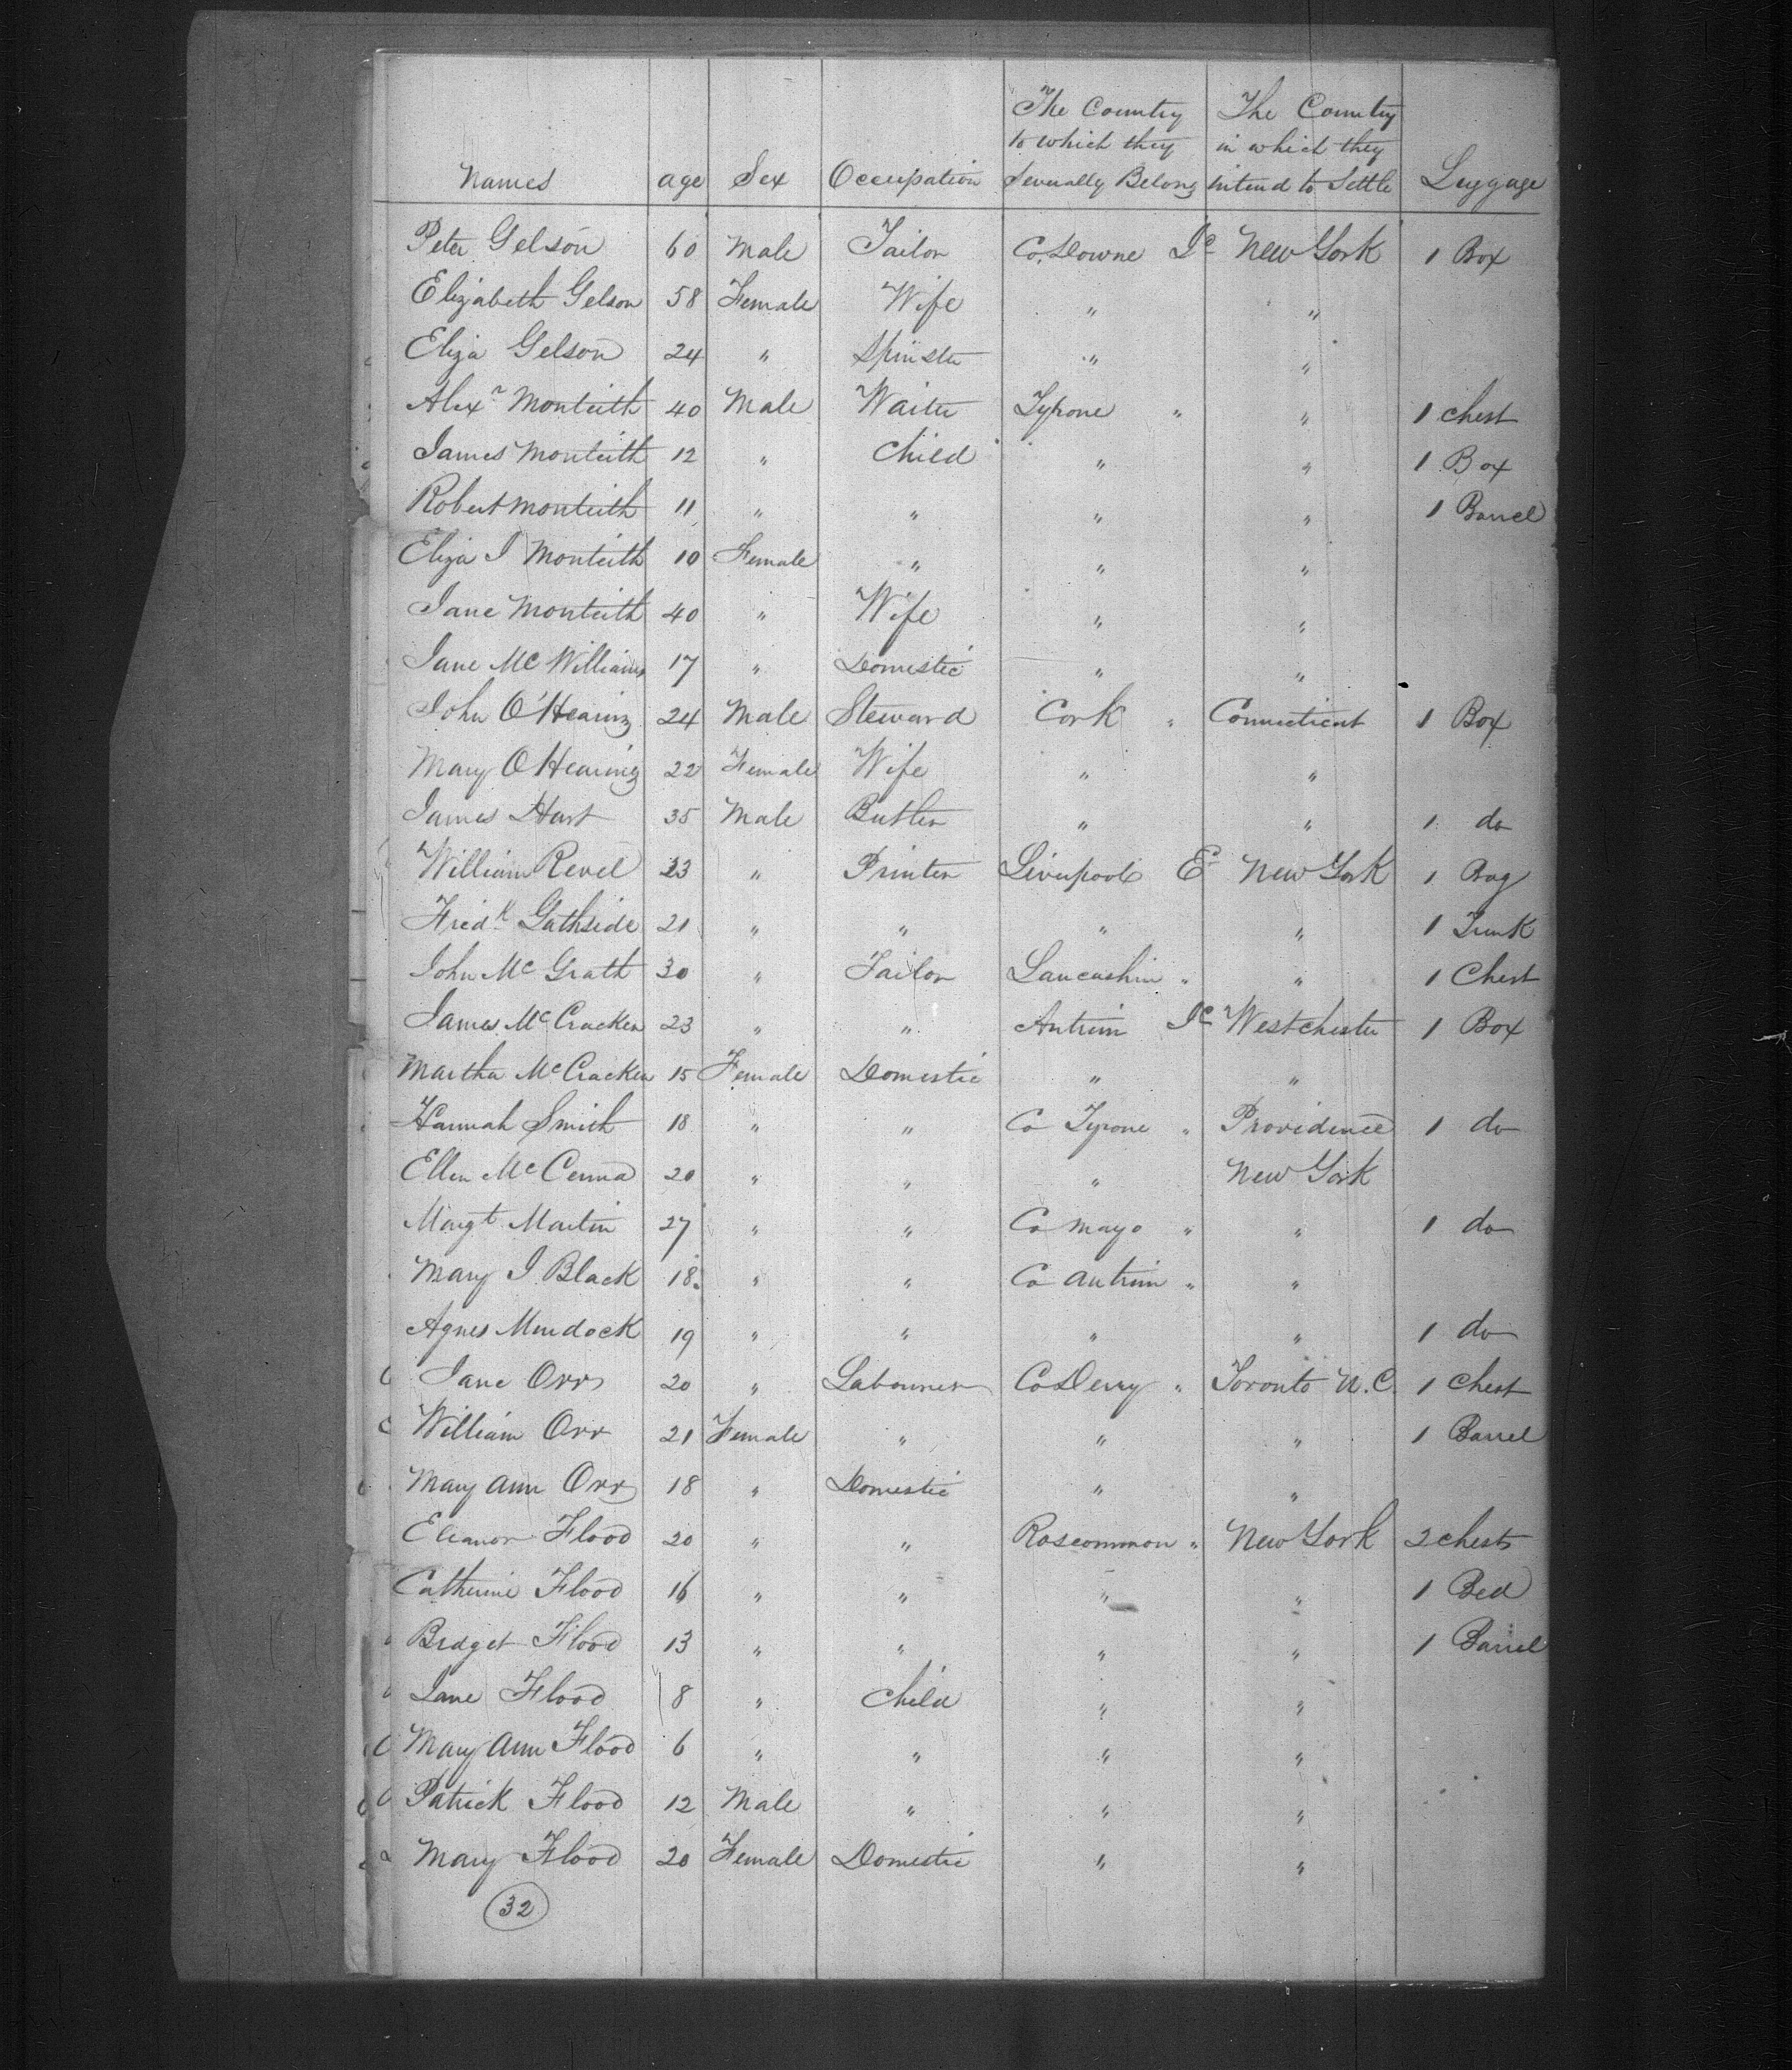 Names age Sex Occupation The Country to which they Severally Belong The Country in which they intend to Settle Luggage
Peter Gelson 60 Male Tailor Co. Downe Id New York 1 Box
Elizabeth Gelson 58 Female Wife " "
Eliza Gelson 24 " Spinster " "
Alexr Monteith 40 Male Waiter Tyrone " " 1 chest
James Monteith 12 " Child " " 1 Box
Robert Monteith 11 " " " " 1 Barrel
Eliza J Monteith 10 Female " " "
Jane Monteith 40 " Wife " "
Jane Mc Williams 17 " Domestic " "
John O'Hearing 24 Male Steward Cork " Connecticut 1 Box
Mary O'Hearing 22 Female Wife " "
James Hart 35 Male Butler " " 1 do
William Revel 23 " Printer Liverpool E New York 1 Bag
Fredk Gathside 21 " " " " 1 Trunk
John Mc Grath 30 " Tailor Lancashire " " 1 Chest
James McCracken 23 " " Antrim Id Westchester 1 Box
Martha McCracken 15 Female Domestic " "
Hannah Smith 18 " " Co Tyrone " Providence 1 do
Ellen McCenna 20 " " " New York
Margt Martin 27 " " Co Mayo " " 1 do
Mary J Black 18 " " Co Antrim " "
Agnes Murdock 19 " " " " 1 do
Jane Orr 20 " Labourer Co Derry " Toronto U.C. 1 Chest
William Orr 21 Female " " " 1 Barrel
Mary Ann Orr 18 " Domestic " "
Eleanor Flood 20 " " Roscommon " New York 2 chests
Catherine Flood 16 " " " " 1 Bed
Bridget Flood 13 " " " " 1 Barrel
Jane Flood 8 " Child " "
Mary Ann Flood 6 " " " "
Patrick Flood 12 Male " " "
Mary Flood 20 Female Domestic " "
32